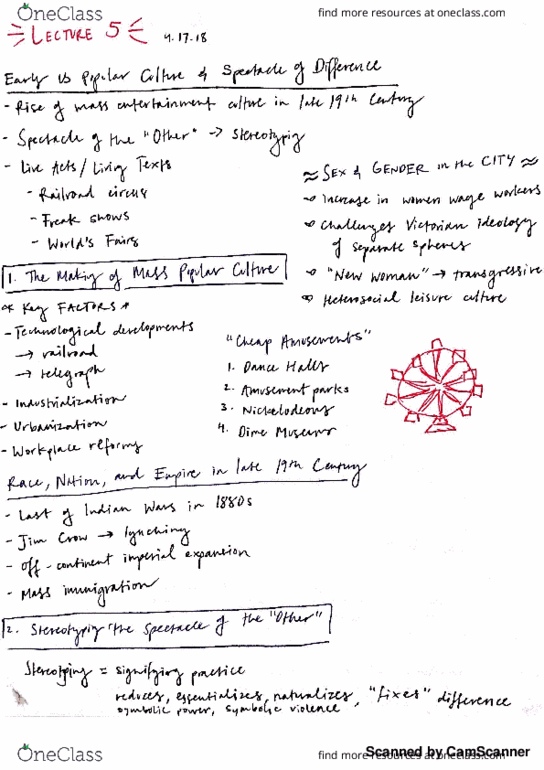 OneClass
find more resources at oneclass.com
LECTURE 5
4.17.18
Early US Popular Culture & Spectacle of Difference
- Rise of mass entertainment culture in late 19th Century
- Spectacle of the "Other" -> stereotypig
- Live Acts / Living Texts
- Railroad circus
- Freak shows
- World's Fairs
≈ SEX & GENDER in the CITY ≈
Increase in women wage workers
Challenges Victorian ideology
of separate spheres
"New Woman" → transgressive
Heterosocial leisure culture
1. The Making of Mass Popular Culture
* Key FACTORS *
- Technological developments
→ railroad
→ telegraph
- Industrialization
- Urbanization
- Workplace reforms
"Cheap Amusements"
1. Dance Halls
2. Amusement parks
3. Nickelodeons
4. Dime Museums
Race, Nation, and Empire in late 19th Century
- Last of Indian Wars in 1880s
- Jim Crow → lynching
- Off-continent imperial expansion
- Mass immigration
2. Stereotypig "the Spectacle of the "Other"
Stereotyping = signifying practice
reduces, essentializes, naturalizes, "fixes" difference
symbolic power, symbolic violence
Scanned by CamScanner
OneClass
find more resources at oneclass.com